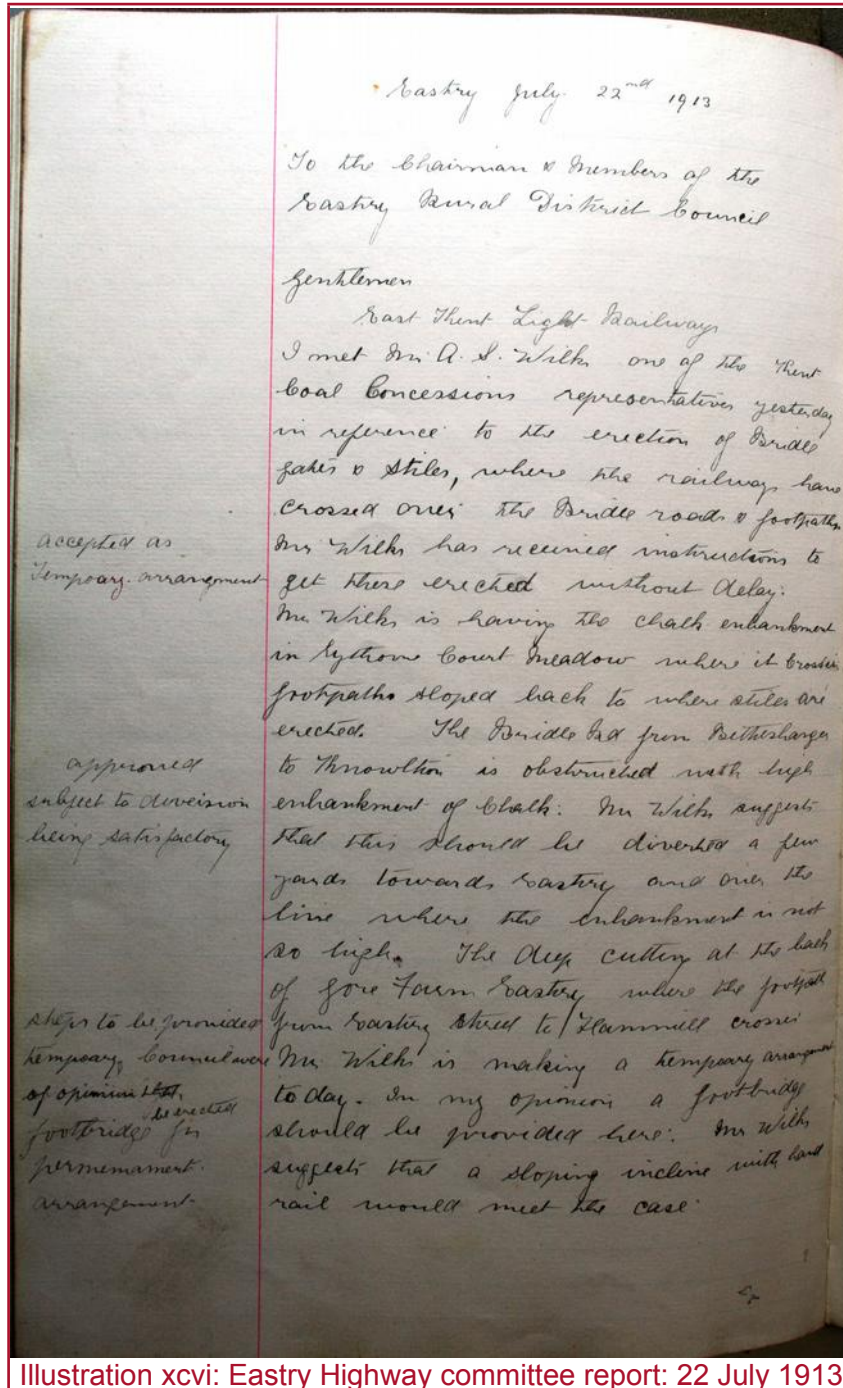 Eastry July 22nd 1913
To the Chairman & Members of the
Eastry Rural District Council
Gentlemen
East Kent Light Railways
I met Mr A. S. Wilks one of the Kent
Coal Concessions representatives yesterday
in reference to the erection of Bridle
gates & Stiles, where the railways have
crossed over the Bridle roads & footpaths
Mr Wilks has received instructions to
get these erected without delay.
accepted as
Tempoary arrangment
Mr Wilks is having the chalk enbankment
in Eythorne Court Meadow where it Crosses
footpaths sloped back to where stiles are
erected. The Bridle Rd from Bettesharger
to Knowlton is obstructed with high
enbankment of Chalk. Mr Wilks suggests
that this should be diverted a few
yards towards Eastry and over the
line where the enbankment is not
so high. The deep cutting at the back
approved
subject to diversion
being satisfactory
of Gore Farm Eastry where the footpath
from Eastry Street to Hammill crosses
Mr Wilks is making a tempoary arrangement
today. In my opinion a footbridge
should be provided here. Mr Wilks
suggests that a sloping incline with hand
rail would meet the case
steps to be provided
tempoary, Council were
of opinion that
footbridge be erected for
permemament
arrangement
Illustration xcvi: Eastry Highway committee report: 22 July 1913